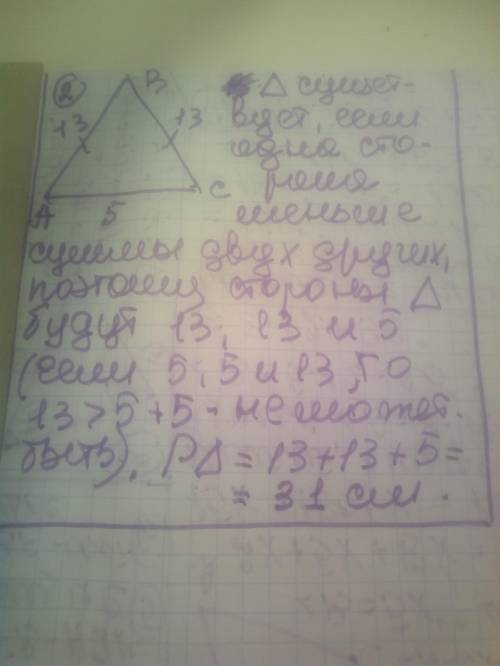 ② B Δ сущест-
13 13 вует, если
одна сто-
A 5 C рона
меньше
суммы двух других,
поэтому стороны Δ
будут 13, 13 и 5
(если 5, 5 и 13, то
13 > 5 + 5 - не может
быть). PΔ = 13 + 13 + 5 =
= 31 см.